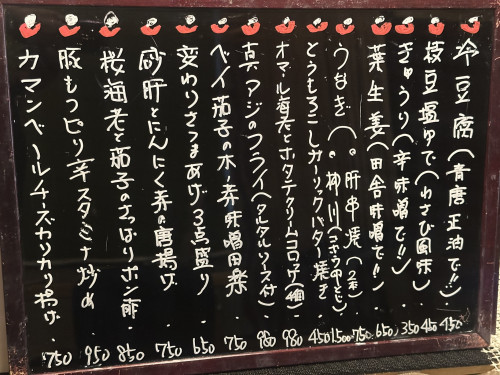 冷豆腐(青唐正油で!!)・450
枝豆塩ゆで(わさび風味)・450
きゅうり(辛味噌で!!)・350
葉生姜(田舎味噌で!!)・650
うなぎ(。肝串焼(2本)・750
。柳川(ゴボウ中心)・1,500
とうもろこしガーリックバター焼き・450
オマール海老とホタテクリームコロッケ(4個)980
真アジのフライ(タルタルソース付)980
ベイ茄子の木の赤味噌田楽・750
変わりさつまあげ3点盛り・650
砂肝とにんにく赤の唐揚げ・750
桜海老と茄子のさっぱりポン酢・850
豚もつピリ辛スタミナ炒め・950
カマンベールチーズカリカリ揚げ・750